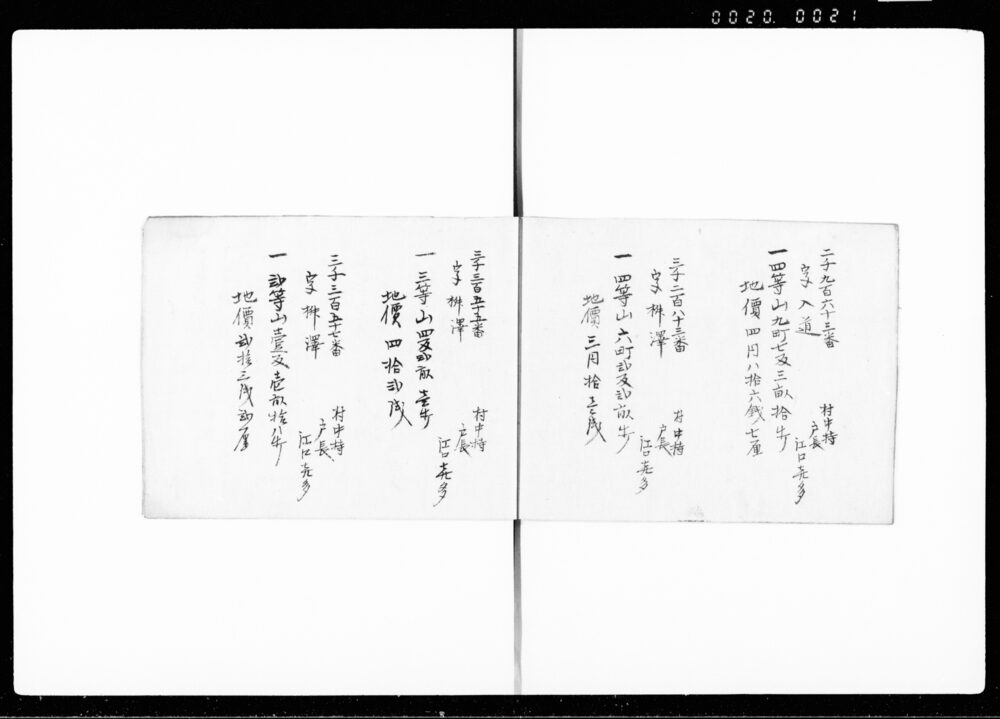 0020. 0021
二千九百六十三番
字 入道
村中持
戸長
江口喜多
一 四等山九町七反三畝拾歩
地價 四円八拾六銭七厘
三千二百八十三番
字 桝澤
村中持
戸長
江口喜多
一 四等山六町弐反弐畝歩
地價 三円拾壱銭
三千三百五十五番
字 桝澤
村中持
戸長
江口喜多
一 三等山四反弐畝壱歩
地價 四拾弐銭
三千三百五十七番
字 桝澤
村中持
戸長
江口喜多
一 弐等山壹反壱畝拾八歩
地價 弐拾三銭弐厘